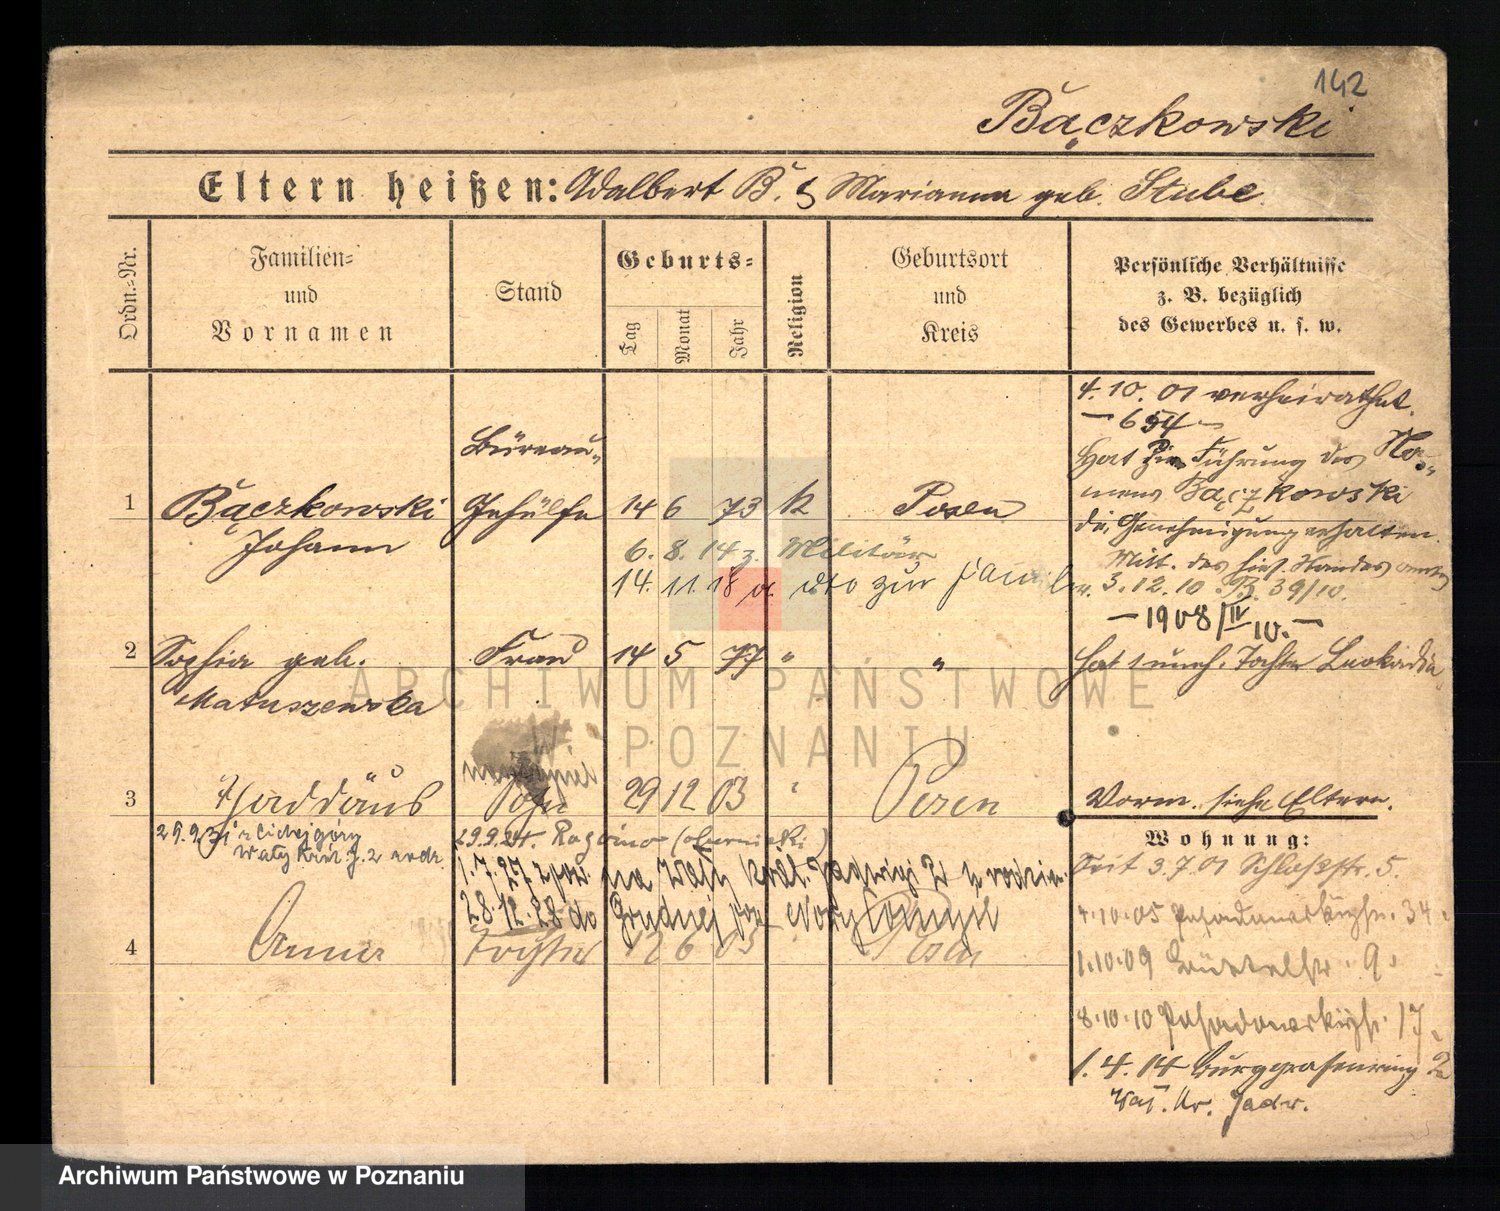 142
Bączkowski
Eltern heißen: Adalbert B. & Marianna geb. Stube.
Ordn.-Nr.
Familien- und Vornamen
Stand
Geburts-
Tag
Monat
Jahr
Religion
Geburtsort und Kreis
Persönliche Verhältnisse
z. B. bezüglich
des Gewerbes u. s. w.
4. 10. 01 verheirathet.
— 654 —
Hat zur Führung des Na-
mens Bączkowski
die Genehmigung erhalten.
Mitt. des hies. Standesamtes
v. 3. 12. 10 B. 39/10.
— 1908/IV 10. —
Büreau-
1 Bączkowski Gehülfe 14 6 73 k Posen
Johann
6. 8. 14 z. Militär
14. 11. 18 a dto zur Famil
2 Sophia geb. Frau 14 5 77 " " hat 1 uneh. Tochter Leokadia
Matuszewska
3 Thaddäus Sohn 29 12 03 " Posen
Vorm. siehe Eltern.
Wohnung:
29.9.24. Rogoźno (obornicki)
1.7.27 na Wały Król. Jadwigi 2
28.12.28 do
4 Anna Tochter 12 6 05 Posen
Seit 3.7.01 Schloßstr. 5.
4.10.05 34
1.10.09 Büttelstr. 9.
8.10.10 17
1. 4. 14 Burggrafenring 2a
Wały Kr. Jadw.
ARCHIWUM PAŃSTWOWE
W POZNANIU
Archiwum Państwowe w Poznaniu